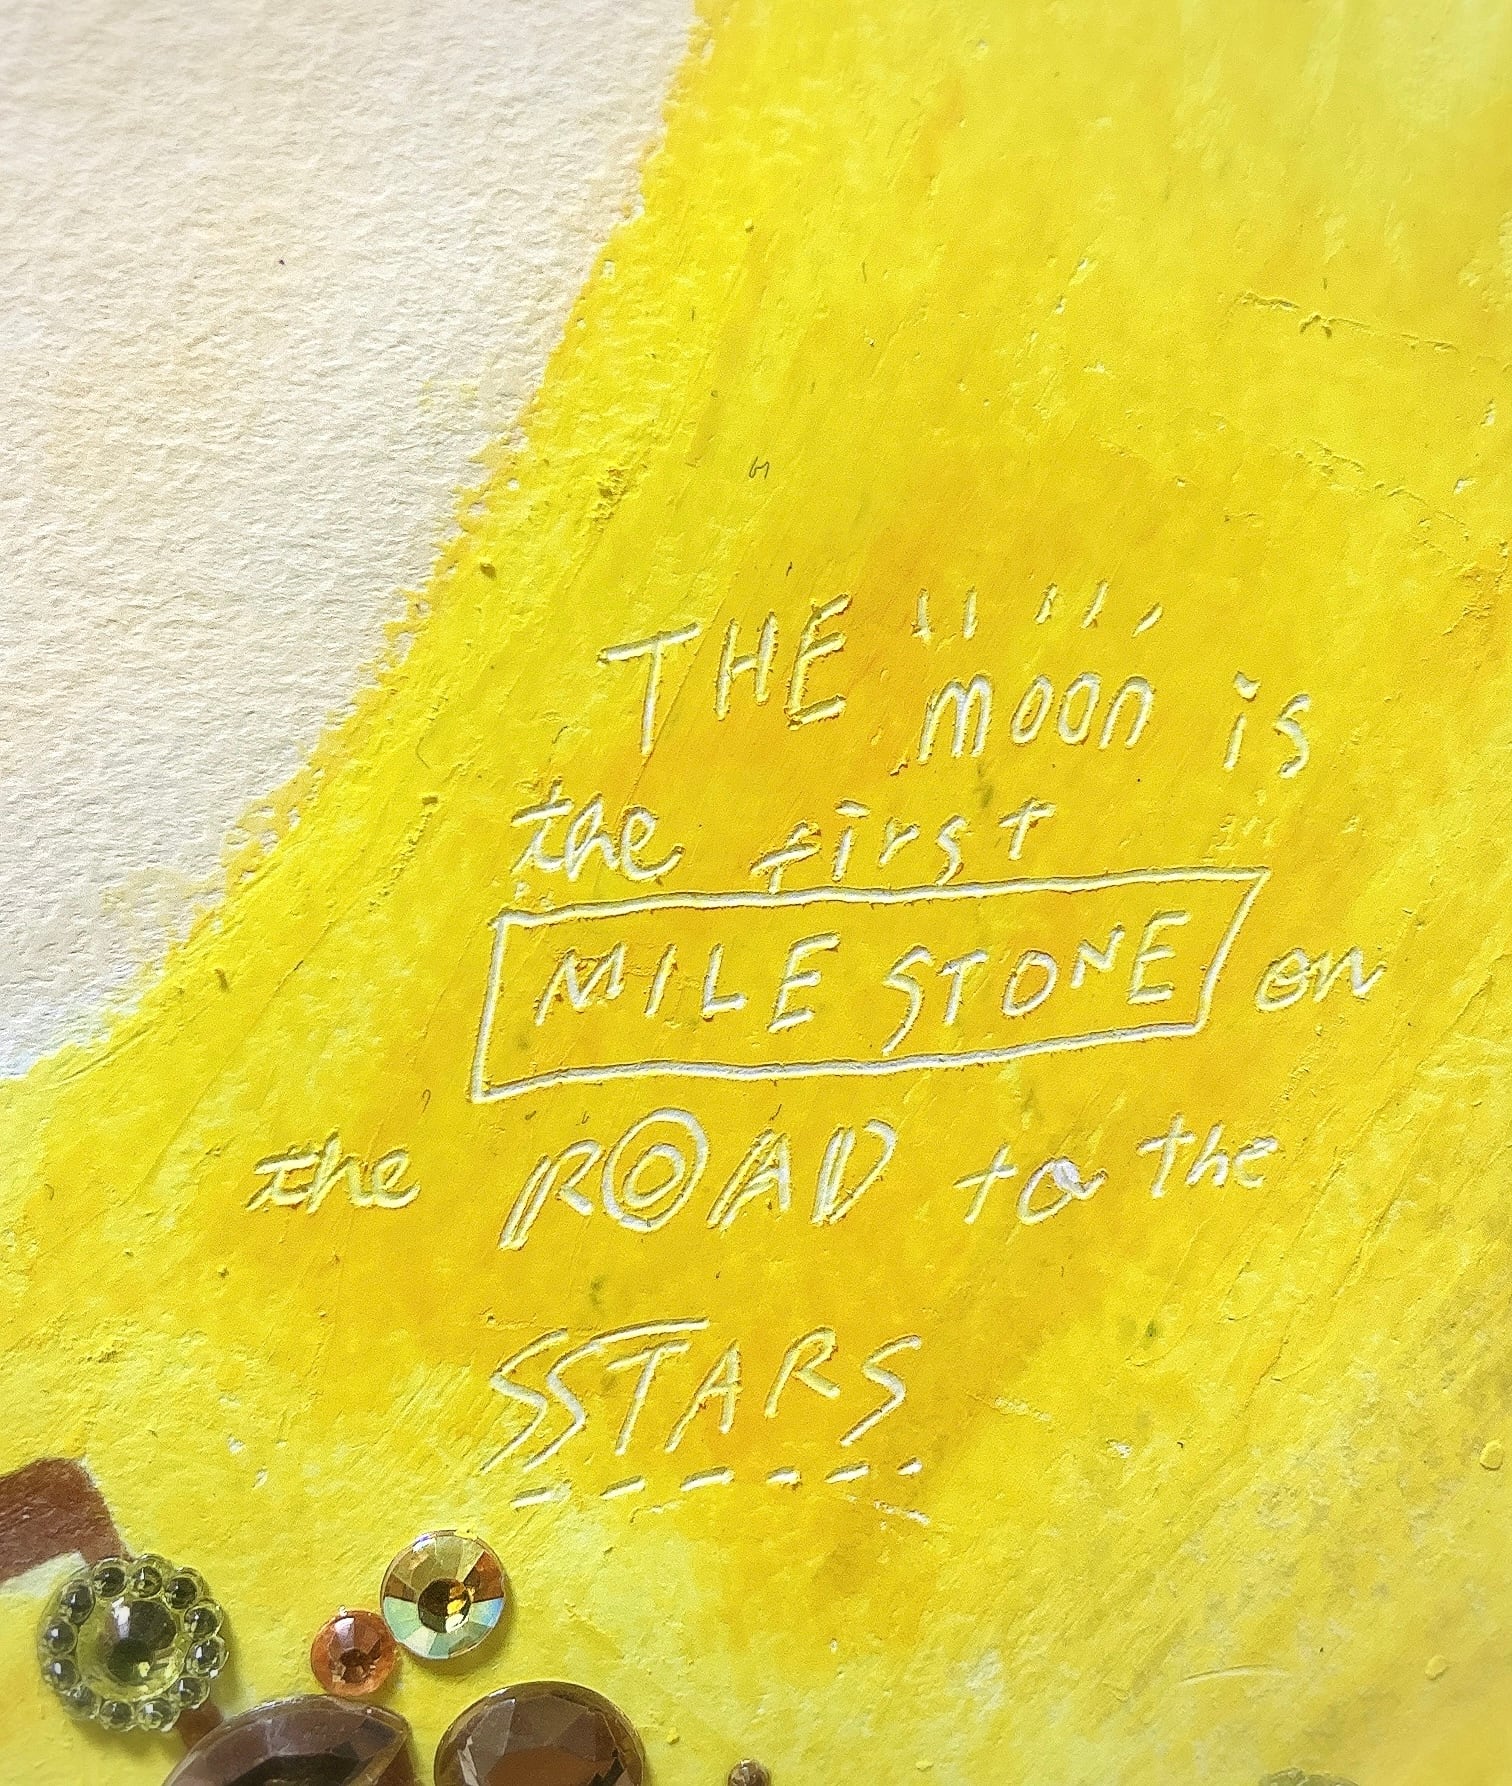 THE moon is
the first
MILESTONE on
the ROAD to the
SSTARS